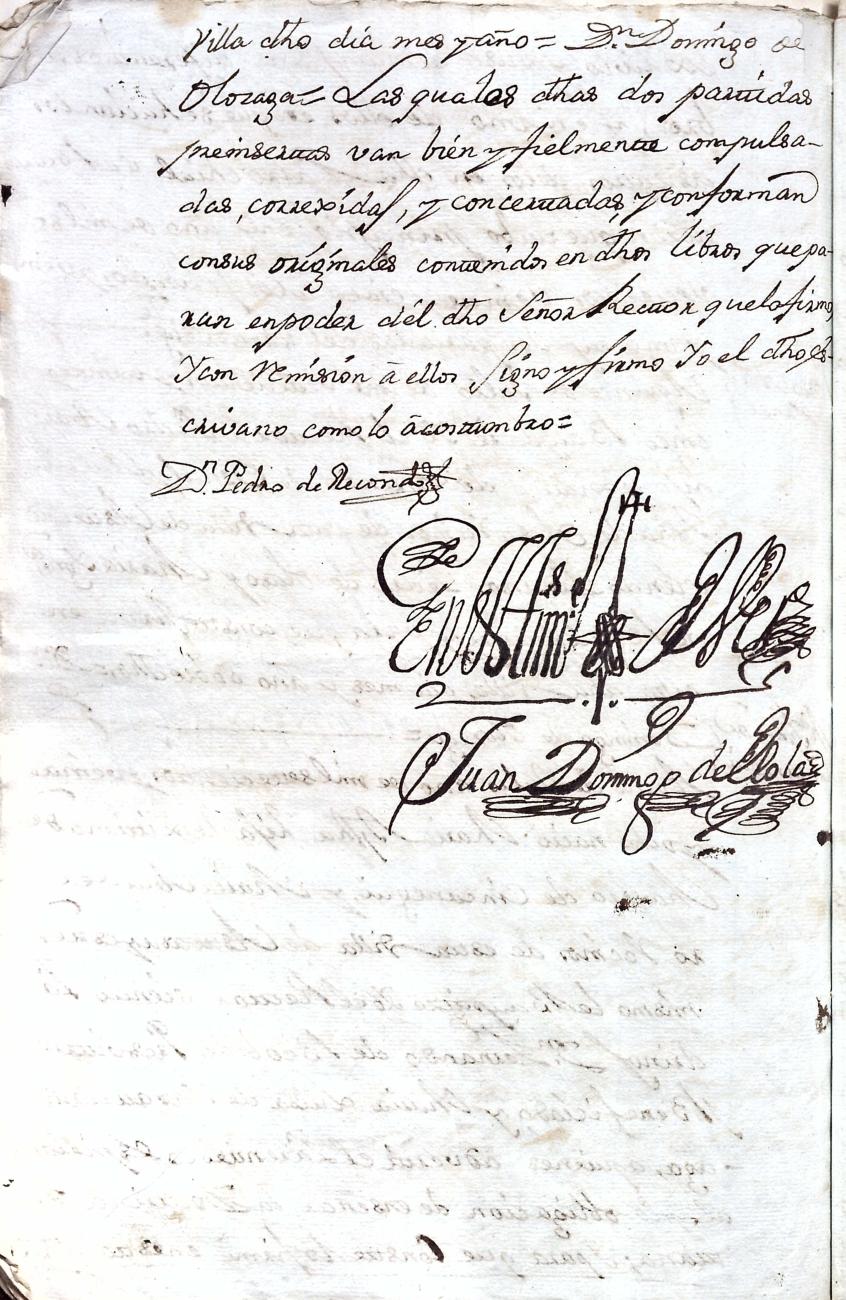 Villa dho día mes y año = Dn. Domingo de
Olozaga = Las quales dhas dos partidas
preinsertas van bién y fielmente compulsa-
das, correxídas, y concertadas, y conforman
consus orígínales contenidos en dhos libros que pa-
ran enpoder dél dho Señor Rector que lo firmo,
Y con remisión à ellos Signo y firmo Yo el dho es-
crivano como lo àcostumbro =
Dn. Pedro de Recondo
En testimº de Ver
Juan Domingo de